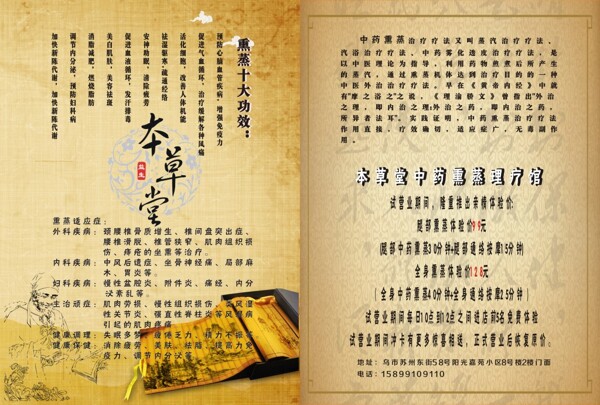 熏蒸十大功效：
预防心脑血管疾病，增强免疫力
促进气血循环，治疗缓解各种风痛
活化细胞，改善人体机能
祛湿驱寒，疏通经络
安神助眠，清除疲劳
促进血液循环，发汗排毒
美白肌肤，美容祛斑
消脂减肥，燃烧脂肪
调节内分泌，预防妇科病
加快新陈代谢，加快新陈代谢
本草堂
熏蒸适应症：
外科疾病：颈腰椎骨质增生、椎间盘突出症、
腰椎滑脱、椎管狭窄、肌肉组织损
伤、痔疮的坐熏等治疗。
内科疾病：中风后遗症、坐骨神经痛、局部麻
木、胃炎等。
妇科疾病：慢性盆腔炎、附件炎、痛经、内分
泌紊乱等。
主治顽症：肌肉劳损、慢性组织损伤、
性关节炎、强直性脊柱炎等风
引起的肌肉疼痛
健康调理：失眠多梦、疲倦乏力、精力不振等
健康保健：消除疲劳、美肤、祛脂、提高免
疫力、调节内分泌等
中药熏蒸治疗疗法又叫蒸汽治疗疗法、
汽浴治疗疗法、中药雾化透皮治疗疗法，是
以中医理论为指导，利用药物煎煮后所产生
的蒸汽，通过熏蒸机体达到治疗目的的一种
中医外治治疗疗法。早在《黄帝内经》中就
有“摩之浴之”之说，《理瀹骈文》曾指出“外治
之理，即内治之理；外治之药，即内治之药，
所异者法耳”。实践证明，中药熏蒸治疗疗法
作用直接，疗效确切，适应症广，无毒副作
用。
本草堂中药熏蒸理疗馆
试营业期间，隆重推出亲情体验价：
腿部熏蒸体验价99元
（腿部中药熏蒸30分钟+腿部通络按摩15分钟）
全身熏蒸体验价128元
（全身中药熏蒸40分钟+全身通络按摩25分钟）
试营业期间每日10点到12点之间进店前5名免费体验
试营业期间冲卡有更多惊喜相送，正式营业后恢复原价。
地址：乌市苏州东街58号阳光嘉苑小区8号楼2楼门面
电话：15899109110